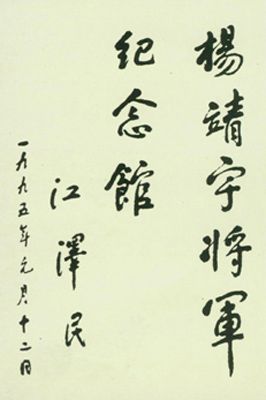 楊靖宇将軍
纪念館
江澤民
一九九五年元月十二日